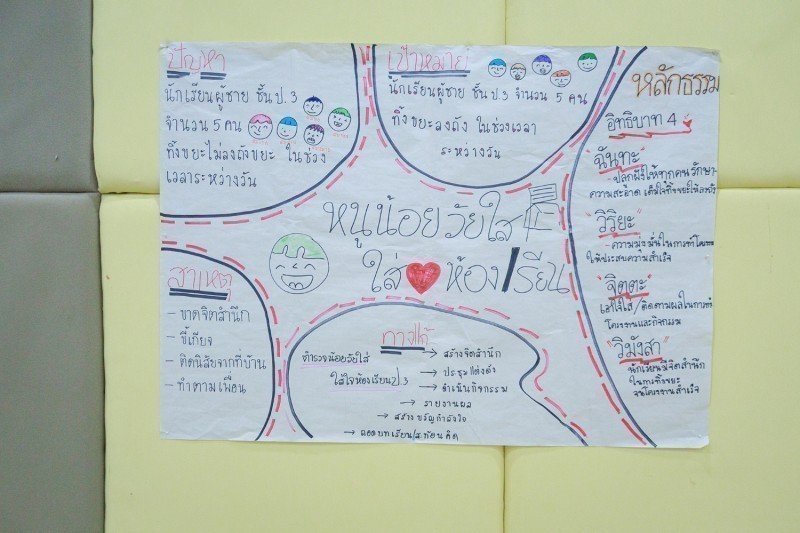 ปัญหา
นักเรียนผู้ชาย ชั้น ป.3
จำนวน 5 คน
ทิ้งขยะไม่ลงถังขยะ ในช่วง
เวลาระหว่างวัน
เป้าหมาย
นักเรียนผู้ชาย ชั้น ป.3 จำนวน 5 คน
ทิ้งขยะลงถัง ในช่วงเวลา
ระหว่างวัน
หนูน้อยวัยใส
ใส่ ห้อง/เรียน
สาเหตุ
- ขาดจิตสำนึก
- ขี้เกียจ
- ติดนิสัยจากที่บ้าน
- ทำตามเพื่อน
ทางแก้
ตำรวจน้อยวัยใส
ใส่ใจห้องเรียน ป3
→ สร้างจิตสำนึก
→ ประชุมแต่งตั้ง
→ ดำเนินกิจกรรม
→ รายงานผล
→ สร้างขวัญกำลังใจ
→ ถอดบทเรียน/สะท้อนคิด
หลักธรรม
อิทธิบาท 4
"ฉันทะ"
- ปลูกฝังให้ทุกคนรักษา-
ความสะอาด เต็มใจทิ้งขยะให้ลงถัง
"วิริยะ"
- ความมุ่งมั่นในการทำโครงงาน
ให้ประสบความสำเร็จ
"จิตตะ"
เอาใจใส่/ติดตามผลในการทำ
โครงงานและกิจกรรม
"วิมังสา"
นักเรียนมีจิตสำนึก
ในการทิ้งขยะ
จนโครงงานสำเร็จ